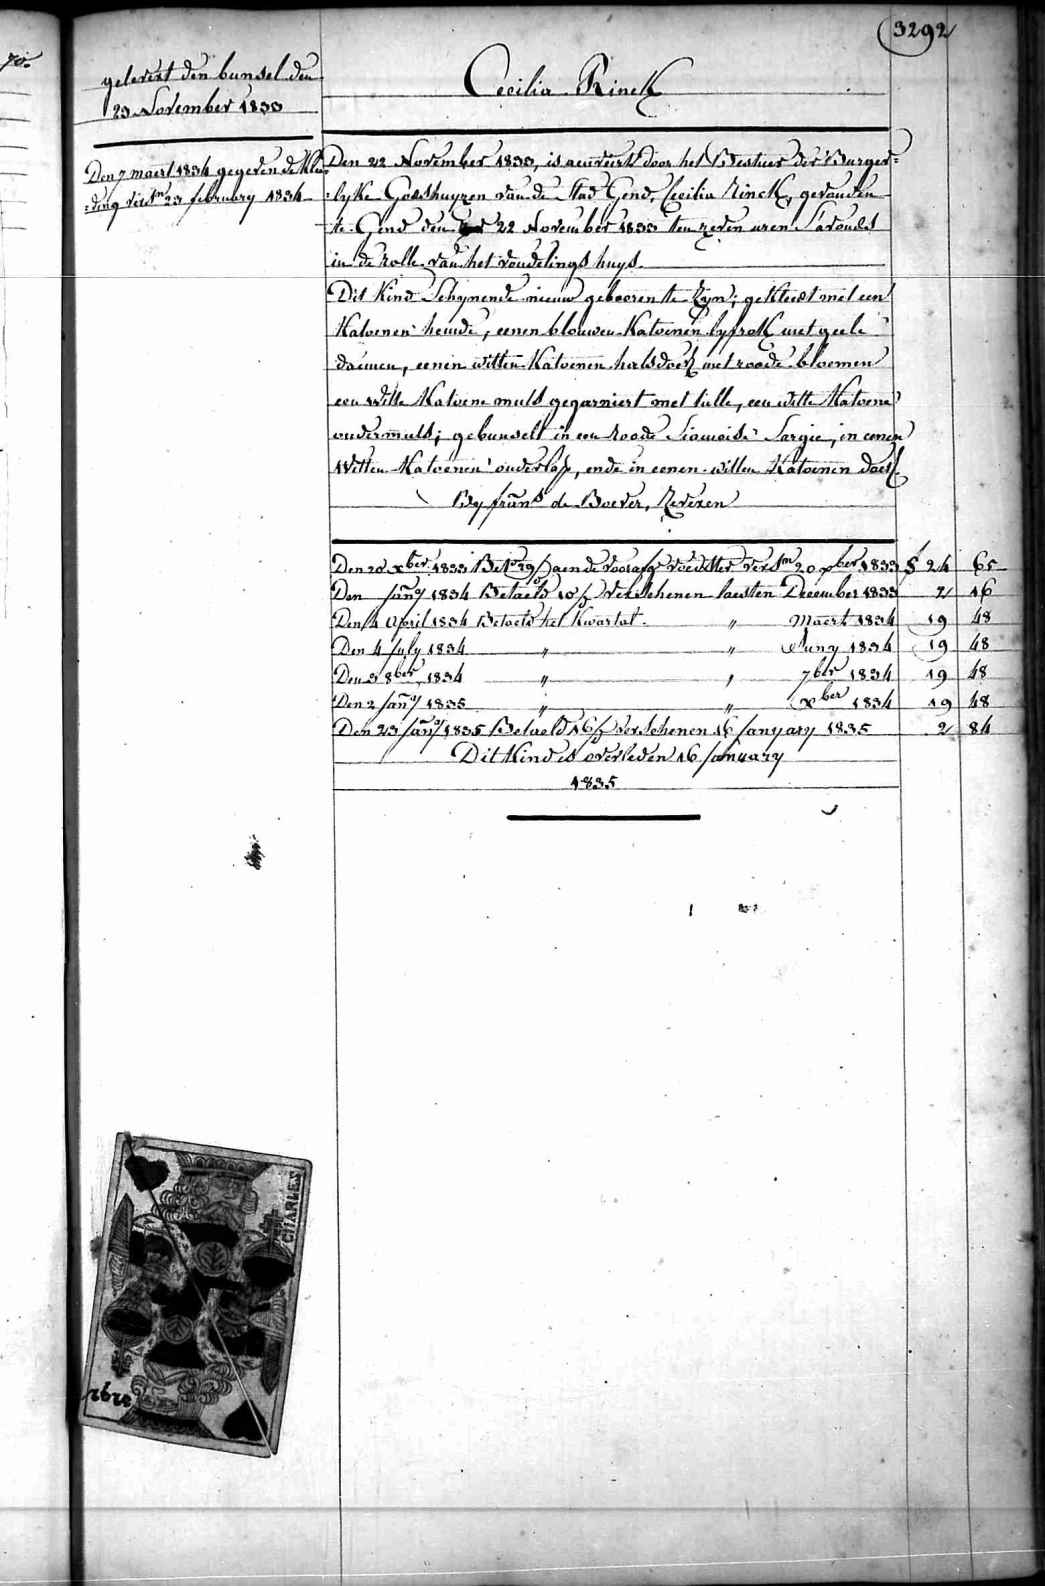 3292
gelevert den bunsel den
23 November 1833
Cecilia Rinck
Den 7 maert 1834 gegeven de klee=
=ding vers.tn 23 february 1834
Den 22 November 1833, is aenveirt door het Bestuer der Burger=
=lyke Godshuyzen van de Stad Gend, Cecilia Rinck, gevonden
te Gend den 22 November 1833 ten zeven uren s'avonds
in de rolle van het vondelings huys.
Dit Kind Schynende nieuw gebooren te Zyn; gekleed met een
Katoenen hemde, eenen blouwen Katoenen lyfrok met geele
, eenen witten Katoenen halsdoek met roode bloemen
een witte Katoene muts gegarniert met tulle, een witte Katoene
ondermuts; gebunselt in een roode Siamoise Sargie, in eenen
Witten Katoenen onderlap, ende in eenen witten Katoenen doek
By frans de Boever, Zevezen
Den 20 xber 1833 aen de voedster 20 xber 1833 24 65
Den jany 1834 Betaeld 10/ Verschenen laesten December 1833 2 16
Den 4 April 1834 Betaeld het Kwartal. „ Maert 1834 19 48
Den 4 July 1834 „ „ Juny 1834 19 48
Den 3 8ber 1834 „ „ 7ber 1834 19 48
Den 2 jany 1835 „ „ xber 1834 19 48
Den 23 jany 1835 Betaeld 16/ Verschenen 16 january 1835 2 84
Dit Kind is overleden 16 january
1835
CHARLES
3292